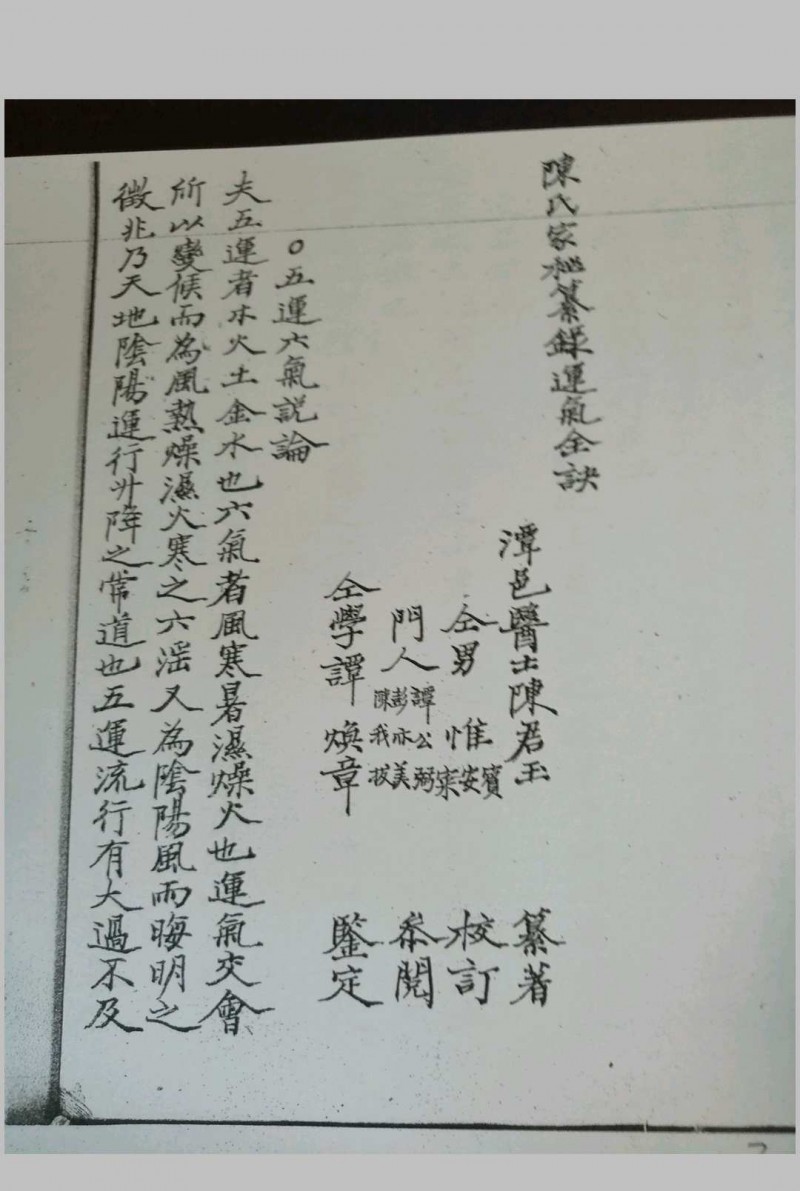 陳氏家秘纂錄運氣全訣
潭邑醫士陳君玉 纂著
仝男 惟賓安寀 校訂
門人 譚公弼 彭亦美 陳我拔 叅閱
仝學譚煥章 鑒定
○五運六氣説論
夫五運者木火土金水也六氣者風寒暑濕燥火也運氣交會
所以變候而為風熱燥濕火寒之六淫又為陰陽風雨晦明之
徵兆乃天地陰陽運行升降之常道也五運流行有大過不及